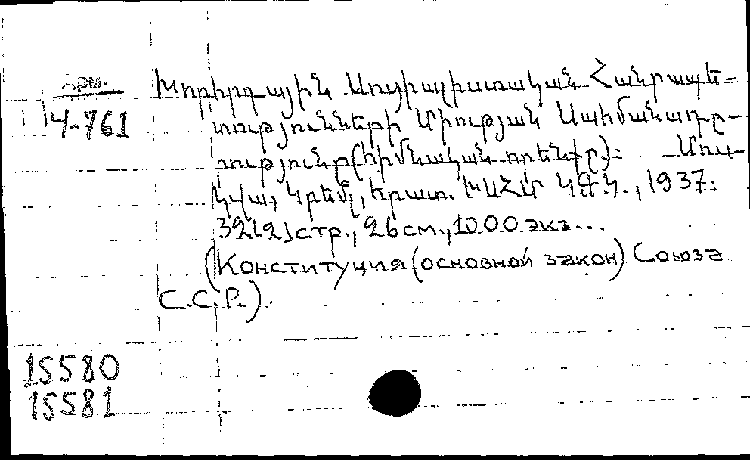 Арм.
4-761
Խորհրդային Սոցիալիստական Հանրապե-
տությունների Միության Սահմանադրը-
ություներ (հիմնական օրենքը)։ Մոս-
կվա, Կրեմլ, հրատ. ԽՍՀՄ ԿԳԿ., 1937։
32[2]стр., 26см., 1000 экз...
(Конституция (основной закон) Союза
С.С.Р.).
15580
15581